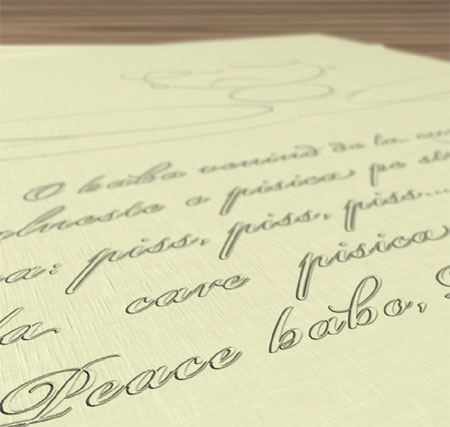 O baba venind de la
a pisica pe
piss, piss, piss...
care pisica
Peace babo,